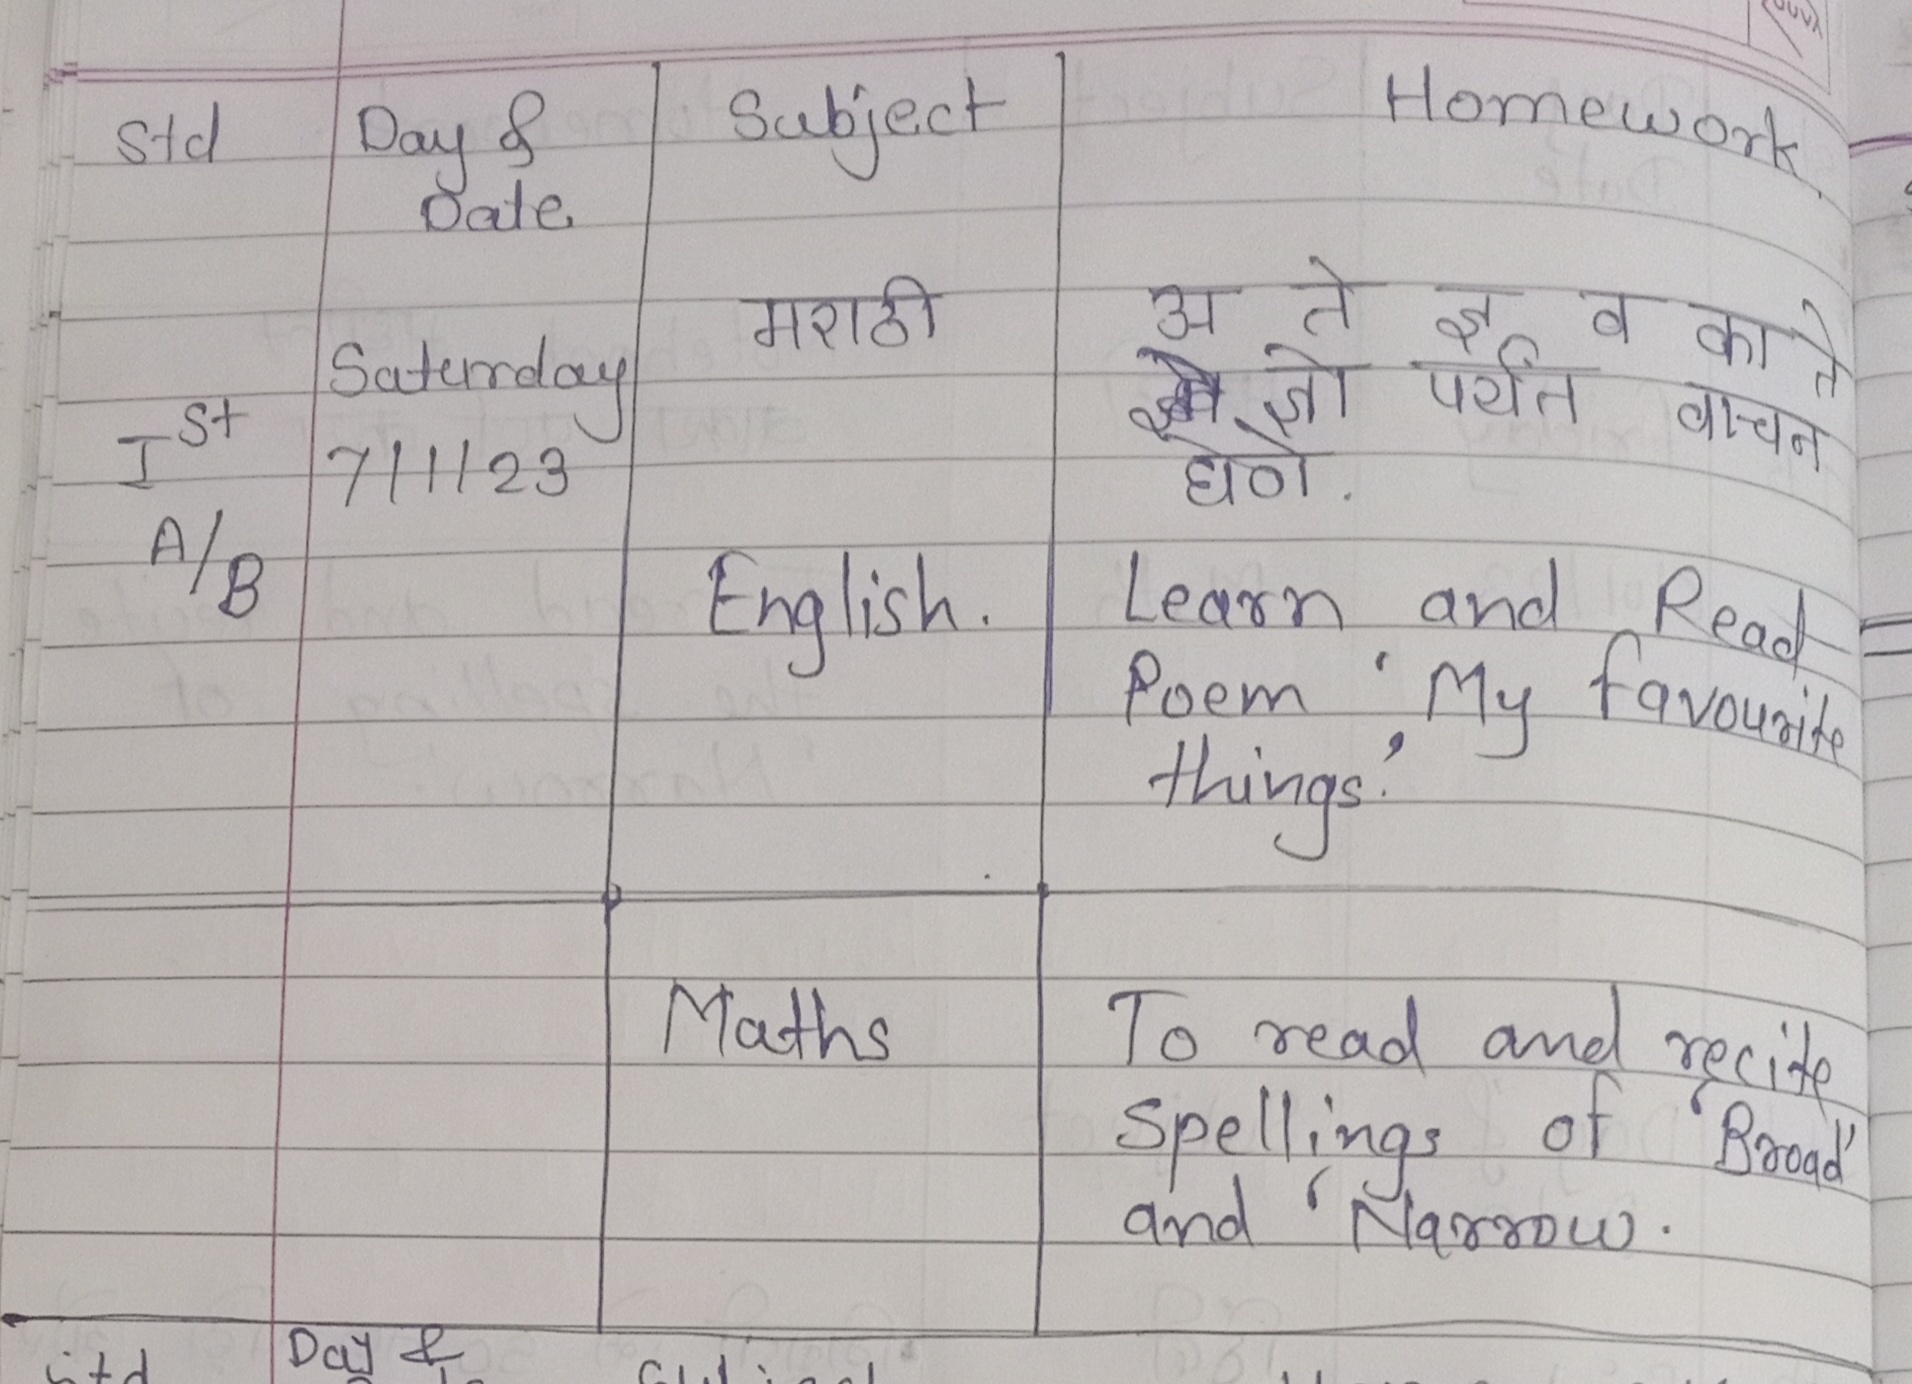 Std Day & Subject Homework
Date
मराठी अ ते ज्ञ व का ते
Saturday ज्ञो पर्यंत वाचन
Ist 7/1/23 घेणे.
A/B English. Learn and Read
Poem 'My favourite
things.'
Maths To read and recite
spellings of 'Broad'
and 'Narrow.
Std Day & Subject